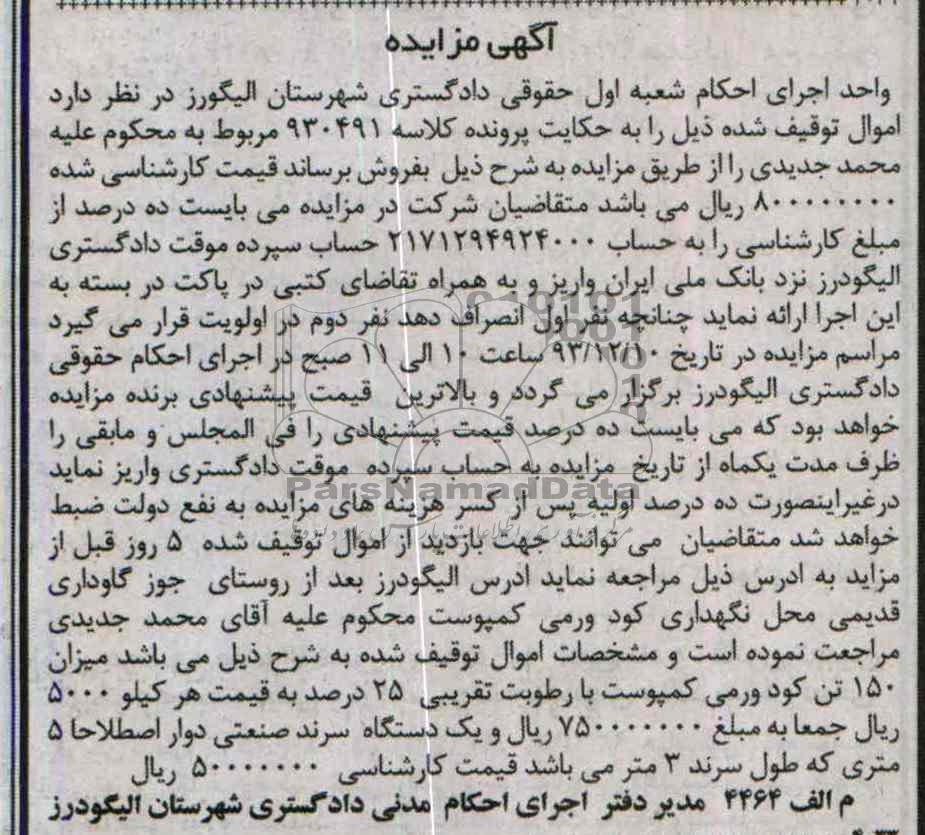 آگهی مزایده
واحد اجرای احکام شعبه اول حقوقی دادگستری شهرستان الیگورز در نظر دارد
اموال توقیف شده ذیل را به حکایت پرونده کلاسه ۹۳۰۴۹۱ مربوط به محکوم علیه
محمد جدیدی را از طریق مزایده به شرح ذیل بفروش برساند قیمت کارشناسی شده
۸۰۰۰۰۰۰۰۰ ریال می باشد متقاضیان شرکت در مزایده می بایست ده درصد از
مبلغ کارشناسی را به حساب ۲۱۷۱۲۹۴۹۲۴۰۰۰ حساب سپرده موقت دادگستری
الیگودرز نزد بانک ملی ایران واریز و به همراه تقاضای کتبی در پاکت در بسته به
این اجرا ارائه نماید چنانچه نفر اول انصراف دهد نفر دوم در اولویت قرار می گیرد
مراسم مزایده در تاریخ ۹۳/۱۲/۱۰ ساعت ۱۰ الی ۱۱ صبح در اجرای احکام حقوقی
دادگستری الیگودرز برگزار می گردد و بالاترین قیمت پیشنهادی برنده مزایده
خواهد بود که می بایست ده درصد قیمت پیشنهادی را فی المجلس و مابقی را
ظرف مدت یکماه از تاریخ مزایده به حساب سپرده موقت دادگستری واریز نماید
ParsNamadData
درغیراینصورت ده درصد اولیه پس از کسر هزینه های مزایده به نفع دولت ضبط
خواهد شد متقاضیان می توانند جهت بازدید از اموال توقیف شده ۵ روز قبل از
مزاید به ادرس ذیل مراجعه نماید ادرس الیگودرز بعد از روستای جوز گاوداری
قدیمی محل نگهداری کود ورمی کمپوست محکوم علیه آقای محمد جدیدی
مراجعت نموده است و مشخصات اموال توقیف شده به شرح ذیل می باشد میزان
۱۵۰ تن کود ورمی کمپوست با رطوبت تقریبی ۲۵ درصد به قیمت هر کیلو ۵۰۰۰
ریال جمعا به مبلغ ۷۵۰۰۰۰۰۰۰ ریال و یک دستگاه سرند صنعتی دوار اصطلاحا ۵
متری که طول سرند ۳ متر می باشد قیمت کارشناسی ۵۰۰۰۰۰۰۰ ریال
م الف ۴۴۶۴ مدیر دفتر اجرای احکام مدنی دادگستری شهرستان الیگودرز